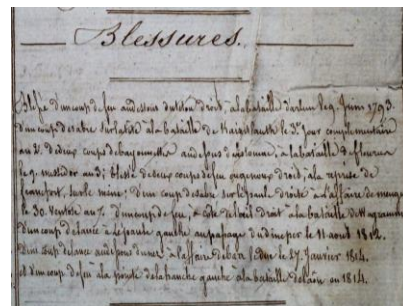 Blessures.
Blessé d'un coup de feu au dessous du téton droit, à la bataille d'arlon le 9 Juin 1793.
d'un coup de sabre sur la tête à la bataille de le 3e Jour complementaire
au 2. de deux coups de bayonnettes au dessous de à la bataille de fleurus
le 9 messidor an 2; blessé de deux coups de feu au genoux droit, à la reprise de
francfort, sur le mein; d'un coup de sabre sur l'épaule droite à l'affaire de
le 30 Ventose an 7. d'un coup de feu, à côté de l'œil droit à la bataille de Wagramme
d'un coup de lance à l'épaule gauche au passage du dnieper le 11 aout 1812.
d'un coup de lance au dessous du nez à l'affaire de bar le duc le 27 Janvier 1814.
et d'un coup de feu à la hanche gauche à la bataille de laon en 1814.